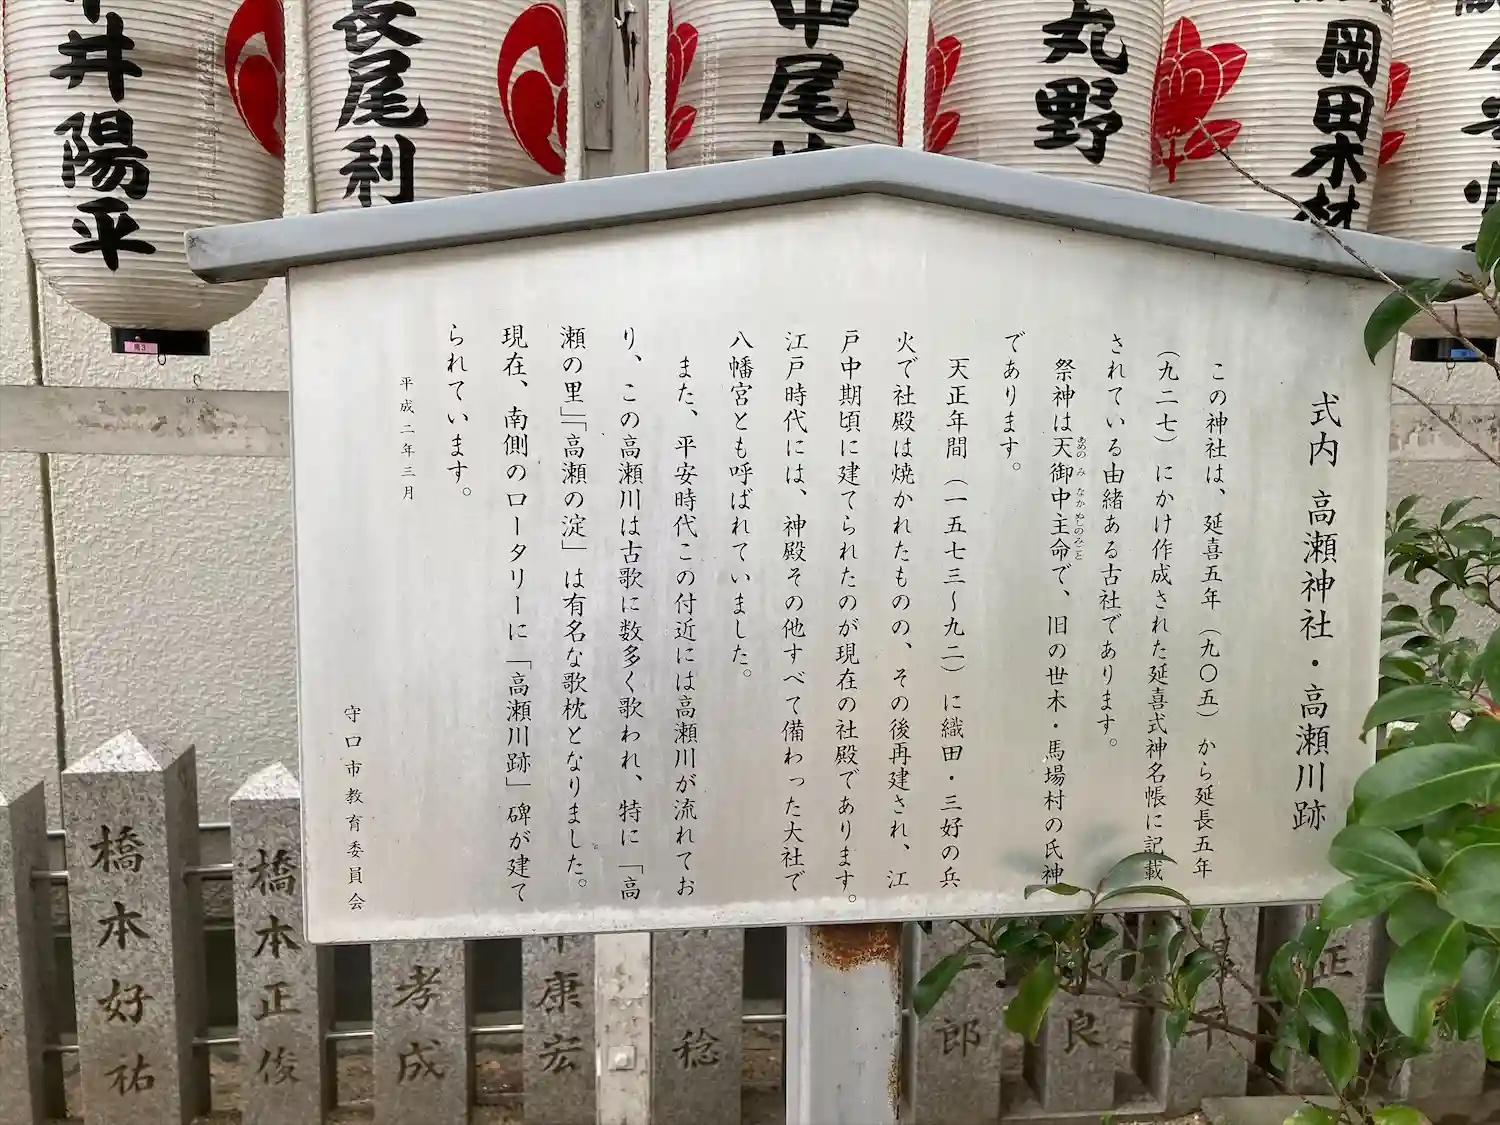 式内 高瀬神社・高瀬川跡
この神社は、延喜五年（九〇五）から延長五年
（九二七）にかけ作成された延喜式神名帳に記載
されている由緒ある古社であります。
祭神は天御中主命で、旧の世木・馬場村の氏神
あめのみなかぬしのみこと
であります。
天正年間（一五七三〜九二）に織田・三好の兵
火で社殿は焼かれたものの、その後再建され、江
戸中期頃に建てられたのが現在の社殿であります。
江戸時代には、神殿その他すべて備わった大社で
八幡宮とも呼ばれていました。
また、平安時代この付近には高瀬川が流れてお
り、この高瀬川は古歌に数多く歌われ、特に「高
瀬の里」「高瀬の淀」は有名な歌枕となりました。
現在、南側のロータリーに「高瀬川跡」碑が建て
られています。
平成二年三月
守口市教育委員会
岡田木材
丸野
中尾
長尾利
井陽平
正
良
郎
稔
康宏
孝成
橋本正俊
橋本好祐